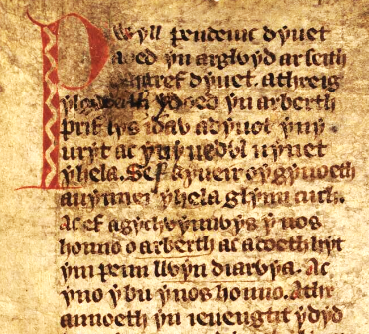 Pwyll pendeuic dyuet
aoed yn arglwyd ar seith
cantref dyuet. athreig
ydoed yn arberth
prif lys idaw adyuot yny
uryt ac yny uedỽl uynet
yhela. Sef kyueir oygyuoeth
auynnei yhela glynn cuch.
Ac ef agychwynnỽys ynos
honno o arberth ac adoeth hyt
ym penn llỽyn diarỽya. Ac
yno ybu ynos honno. Athr
annoeth yn ieuengtit ydyd